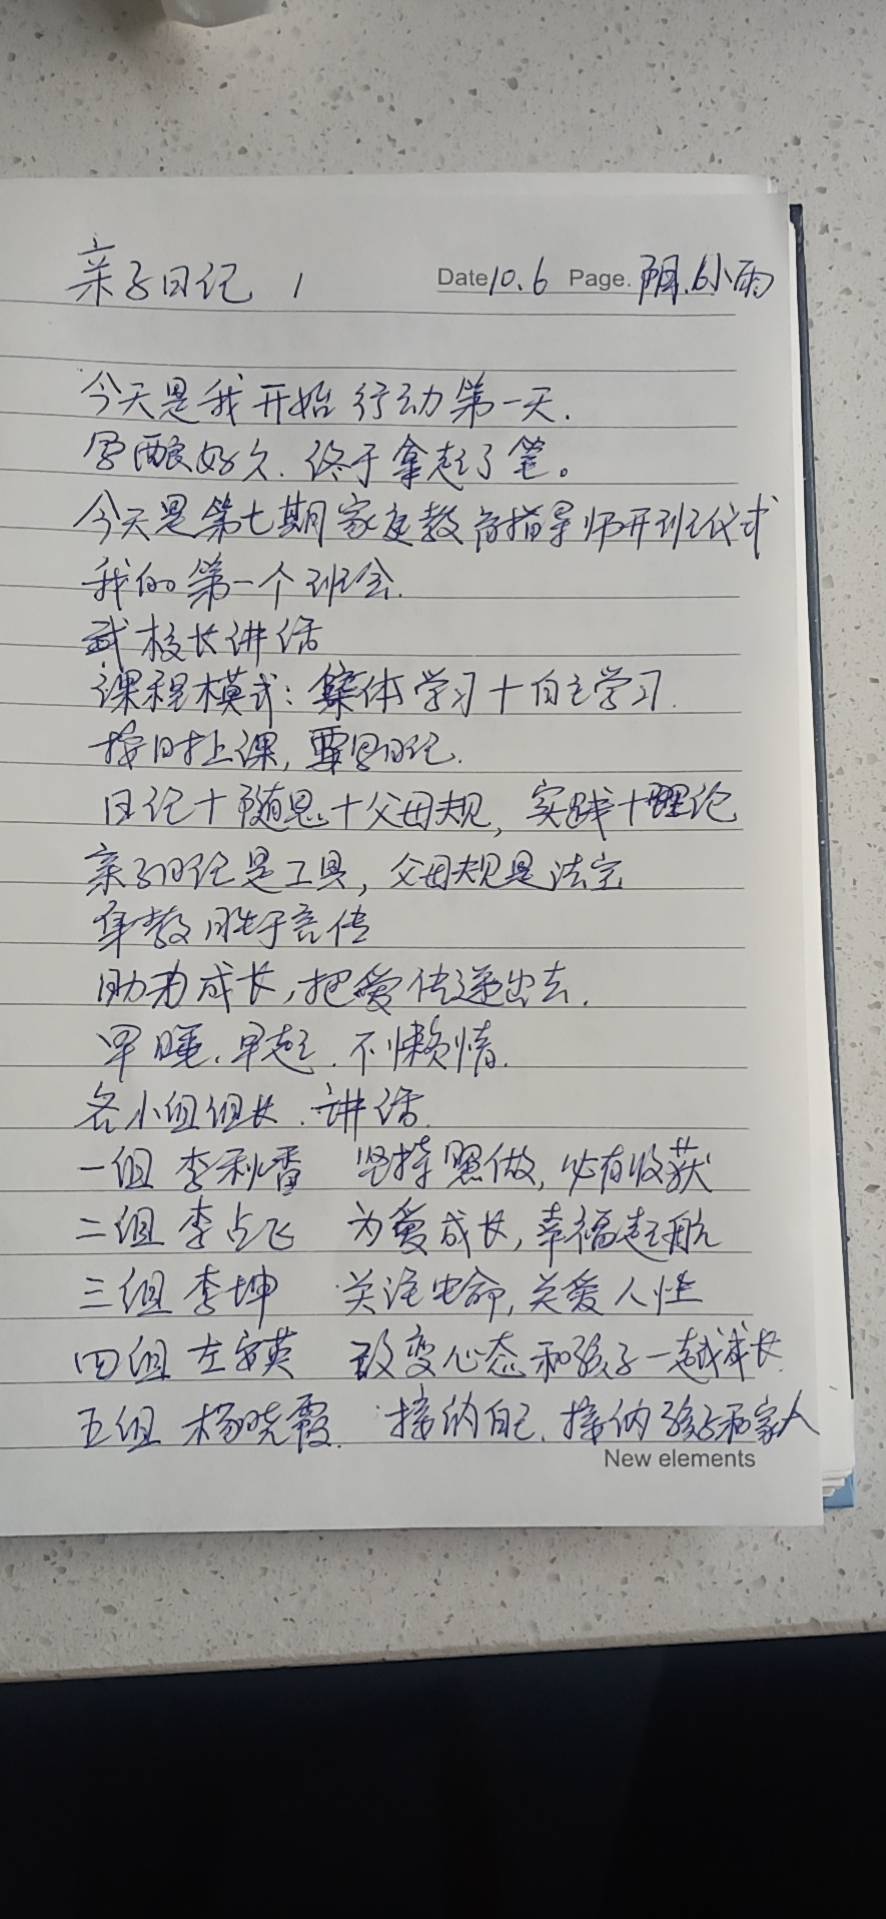 亲子日记 1 Date 10.6 Page. 阴.小雨
今天是我开始行动第一天.
酿好久.终于拿起了笔。
今天是第七期家庭教育指导师开班仪式
我的第一个班会.
武校长讲话
课程模式:集体学习+自主学习.
按时上课,要写日记.
日记+随思+父母规,实践+理论
亲子日记是工具,父母规是法宝
身教胜于言传
助力成长,把爱传递出去.
早睡.早起.不懒惰.
各小组组长.讲话.
一组 李秋香 坚持照做,必有收获
二组 李占飞 为爱成长,幸福起航
三组 李坤 关注生命,关爱人性
四组 左安英 改变心态和孩子一起成长.
五组 杨晓霞. 接纳自己.接纳孩子和家人
New elements